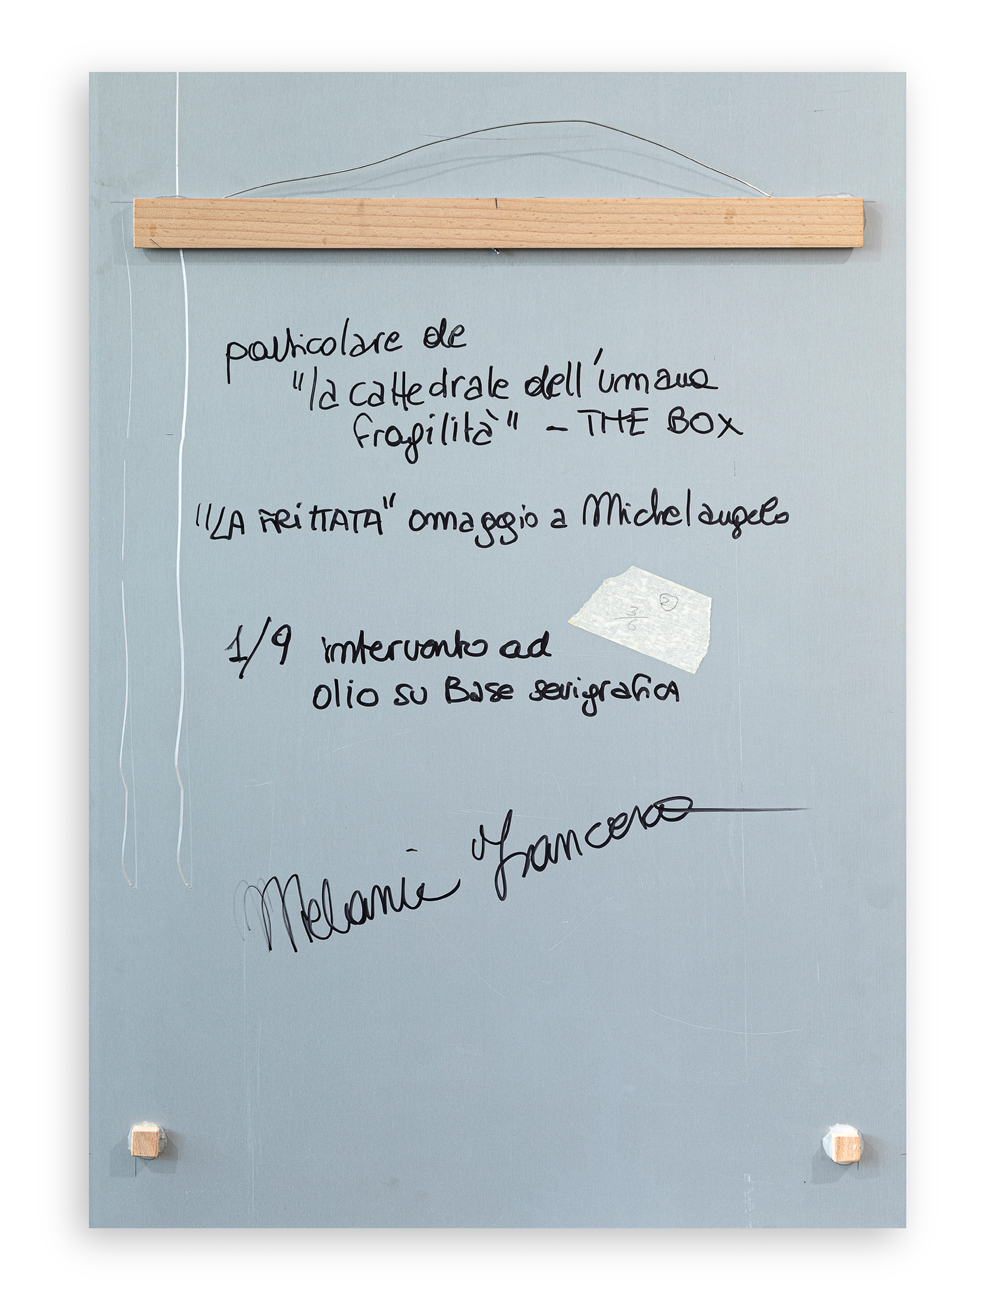 particolare de
"la cattedrale dell'umana
fragilità" - THE BOX
"LA FRITTATA" omaggio a Michelangelo
3/6 2
1/9 intervento ad
olio su Base serigrafica
Melanie Francesca